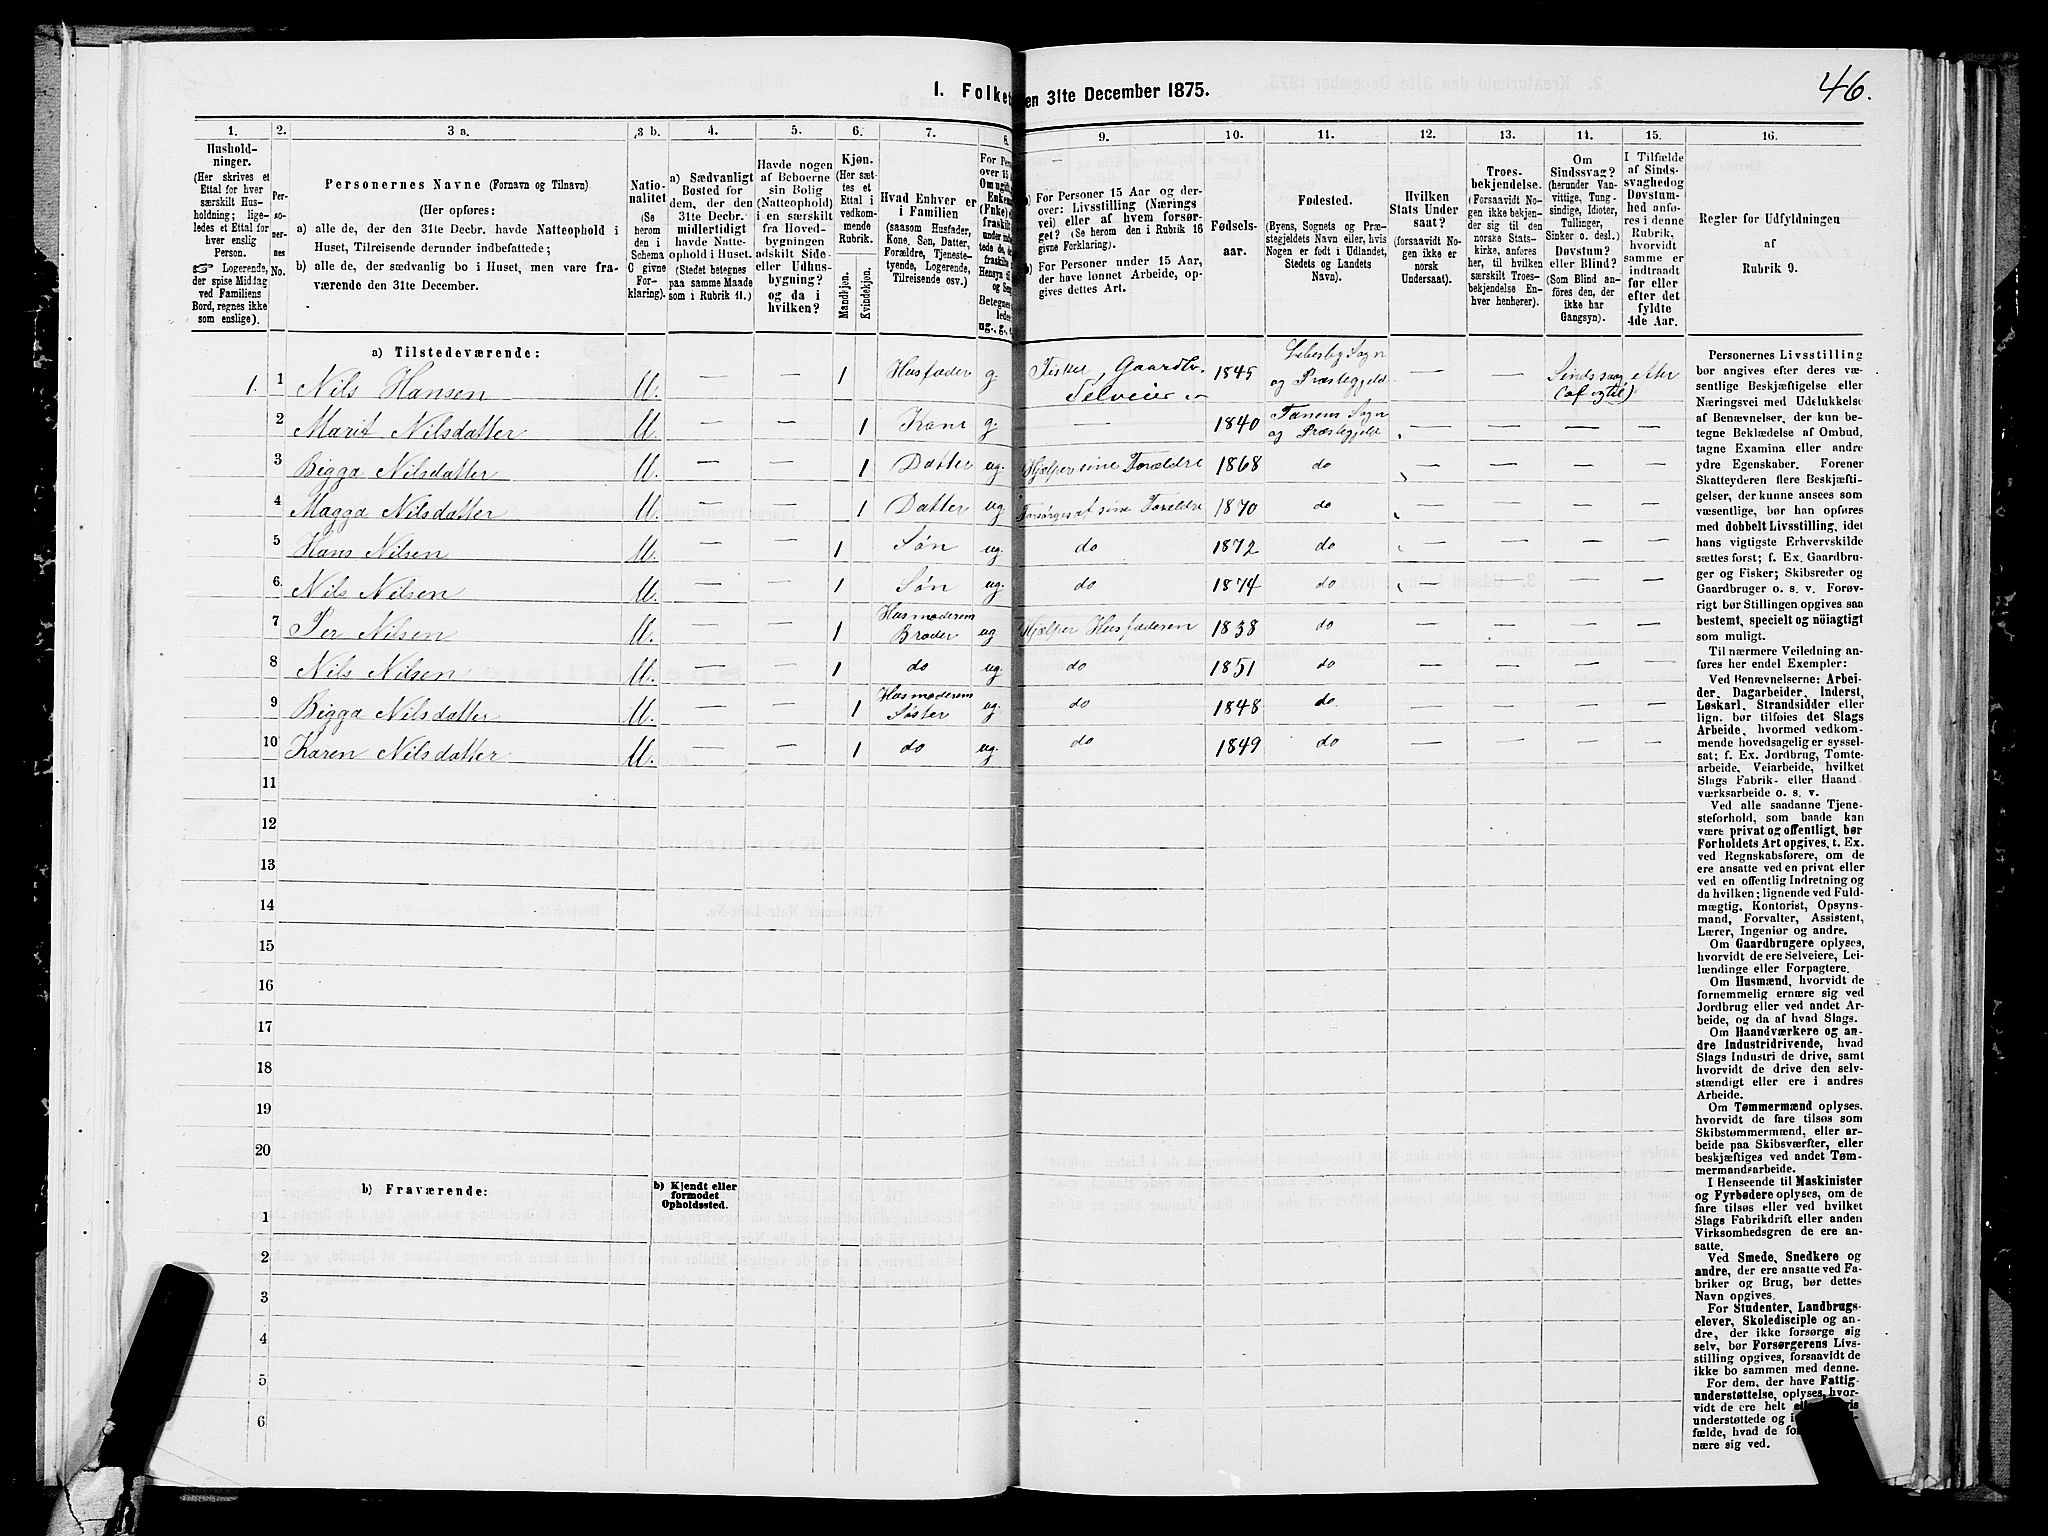 46.
1. Folket en 31te December 1875.
1. 2. 3 a. 3 b. 4. 5. 6. 7. 8. 9. 10. 11. 12. 13. 14. 15. 16.
Hushold-
ninger.
(Her skrives et
Ettal for hver
særskilt Hus-
holdning; lige-
ledes et Ettal for
hver enslig
Person.
☞ Logerende,
der spise Middag
ved Familiens
Bord, regnes ikke
som enslige).
Per-
so-
ner-
nes
No.
Personernes Navne (Fornavn og Tilnavn)
(Her opføres:
a) alle de, der den 31te Decbr. havde Natteophold i
Huset, Tilreisende derunder indbefattede;
b) alle de, der sædvanlig bo i Huset, men vare fra-
værende den 31te December.
Natio-
nalitet
(Se
herom
den i
Schema
G givne
For-
klaring).
a) Sædvanligt
Bosted for
dem, der den
31te Decbr.
midlertidigt
havde Natte-
ophold i Huset.
(Stedet betegnes
paa samme Maade
som i Rubrik 11.)
Havde nogen
af Beboerne
sin Bolig
(Natteophold)
i en særskilt
fra Hoved-
bygningen
adskilt Side-
eller Udhus-
bygning?
og da i
hvilken?
Kjøn.
(Her sæt-
tes et
Ettal i
vedkom-
mende
Rubrik.
Mandkjøn.
Kvindekjøn.
Hvad Enhver er
i Familien
(saasom Husfader,
Kone, Søn, Datter,
Forældre, Tjeneste-
tyende, Logerende,
Tilreisende osv.)
For Per
over 15
Om ugift,
Enkem
(Fnke)
fraskilt
a) For Personer 15 Aar og der-
over: Livsstilling (Nærings
vei) eller af hvem forsør-
get? (Se herom den i Rubrik 16
givne Forklaring).
b) For Personer under 15 Aar,
der have lønnet Arbeide, op-
gives dettes Art.
Fødsels-
aar.
Fødested.
(Byens, Sognets og Præ-
stegjeldets Navn eller, hvis
Nogen er født i Udlandet,
Stedets og Landets
Navn).
Hvilken
Stats Under
saat?
(forsaavidt No-
gen ikke er
norsk
Undersaat).
Troes-
bekjendelse.
(Forsaavidt No-
gen ikke bekjen-
der sig til den
norske Stats-
kirke, anføres
her, til hvilken
særskilt Troes-
bekjendelse En-
hver henhører).
Om
Sindssvag?
(herunder Van-
vittige, Tung-
sindige, Idioter,
Tullinger,
Sinker o. desl.)
Døvstum?
eller Blind?
(Som Blind an-
føres den, der
ikke har
Gangsyn).
I Tilfælde
af Sinds-
svaghed og
Døvstum-
hed anfø-
res i denne
Rubrik,
hvorvidt
samme er
indtraadt
før eller
efter det
fyldte
4de Aar.
Regler for Udfyldningen
af
Rubrik 9.
a) Tilstedeværende:
1. 1 Nils Hansen M. — — 1 Husfader g. Fisker, Gaardbr. Selveier 1845 Lebesby Sogn og Præstegjeld — — Sindssvag (af og til) efter
2 Marit Nilsdatter M. — — 1 Kone g. — 1840 Tanens Sogn og Præstegjeld — — — —
3 Bigga Nilsdatter M. — — 1 Datter ug. Hjælper sine Forældre 1868 do — — —
4 Magga Nilsdatter M. — — 1 Datter ug. Forsørges af sine Forældre 1870 do — — —
5 Hans Nilsen M. — — 1 Søn ug. do 1872 do — — —
6. Nils Nilsen M. — — 1 Søn ug. do 1874 do — — —
7 Per Nilsen M. — — 1 Husmoderens Broder ug Hjælper Husfaderen 1838 do — — — —
8 Nils Nilsen M. — — 1 do ug. do 1851 do — — — —
9 Bigga Nilsdatter M. — — 1 Husmoderens Søster ug. do 1848 do — — — —
10 Karen Nilsdatter M. — — 1 do ug. do 1849 do — — — —
11
12
13
14
15
16
17
18
19
20
b) Fraværende:
b) Kjendt eller
formodet
Opholdssted.
1
2
3
4
5
6
Personernes Livsstilling
bør angives efter deres væ-
sentlige Beskjæftigelse eller
Næringsvei med Udelukkelse
af Benævnelser, der kun be-
tegne Beklædelse af Ombud,
tagne Examina eller andre
ydre Egenskaber. Forener
Skatteyderen flere Beskjæfti-
gelser, der kunne ansees som
væsentlige, bør han opføres
med dobbelt Livsstilling, idet
hans vigtigste Erhvervskilde
sættes først; f. Ex. Gaardbru-
ger og Fisker; Skibsreder og
Gaardbruger o. s. v. Forøv-
rigt bør Stillingen opgives saa
bestemt, specielt og nöiagtigt
som muligt.
Til nærmere Veiledning an-
føres her endel Exempler:
Ved Benævnelserne: Arbei-
der, Dagarbeider, Inderst,
Løskarl, Strandsidder eller
lign. bør tilføies det Slags
Arbeide, hvormed vedkom-
mende hovedsagelig er syssel-
sat; f. Ex. Jordbrug, Tomte-
arbeide, Veiarbeide, hvilket
Slags Fabrik- eller Haand-
værksarbeide o. s. v.
Ved alle saadanne Tjene-
steforhold, som baade kan
være privat og offentligt, bør
Forholdets Art opgives, t. Ex.
ved Regnskabsførere, om de
ere ansatte ved en privat eller
ved en offentlig Indretning og
da hvilken; lignende ved Fuld-
mægtig, Kontorist, Opsyns-
mand, Forvalter, Assistent,
Lærer, Ingeniør og andre.
Om Gaardbrugere oplyses,
hvorvidt de ere Selveiere, Lei-
lændinge eller Forpagtere.
Om Husmænd, hvorvidt de
fornemmelig ernære sig ved
Jordbrug eller ved andet Ar-
beide, og da af hvad Slags.
Om Haandværkere og an-
dre Industridrivende, hvad
Slags Industri de drive, samt
hvorvidt de drive den selv-
stændigt eller ere i andres
Arbeide.
Om Tømmermænd oplyses,
hvorvidt de fare tilsøs som
Skibstømmermænd, eller ar-
beide paa Skibsværfter, eller
beskjæftiges ved andet Tøm-
mermandsarbeide.
I Henseende til Maskinister
og Fyrbødere oplyses, om de
fare tilsøs eller ved hvilket
Slags Fabrikdrift eller anden
Virksomhedsgren de ere an-
satte.
Ved Smede, Snedkere og
andre, der ere ansatte ved Fa-
briker og Brug, bør dettes
Navn opgives.
For Studenter, Landbrugs-
elever, Skoledisciple og an-
dre, der ikke forsørge sig
selv, bør Forsørgerens Livs-
stilling opgives, forsaavidt de
ikke bo sammen med denne.
For dem, der have Fattig-
understøttelse, oplyses, hvor-
vidt de ere helt
understøttede og i
fælde, hvad de
nære sig ved.